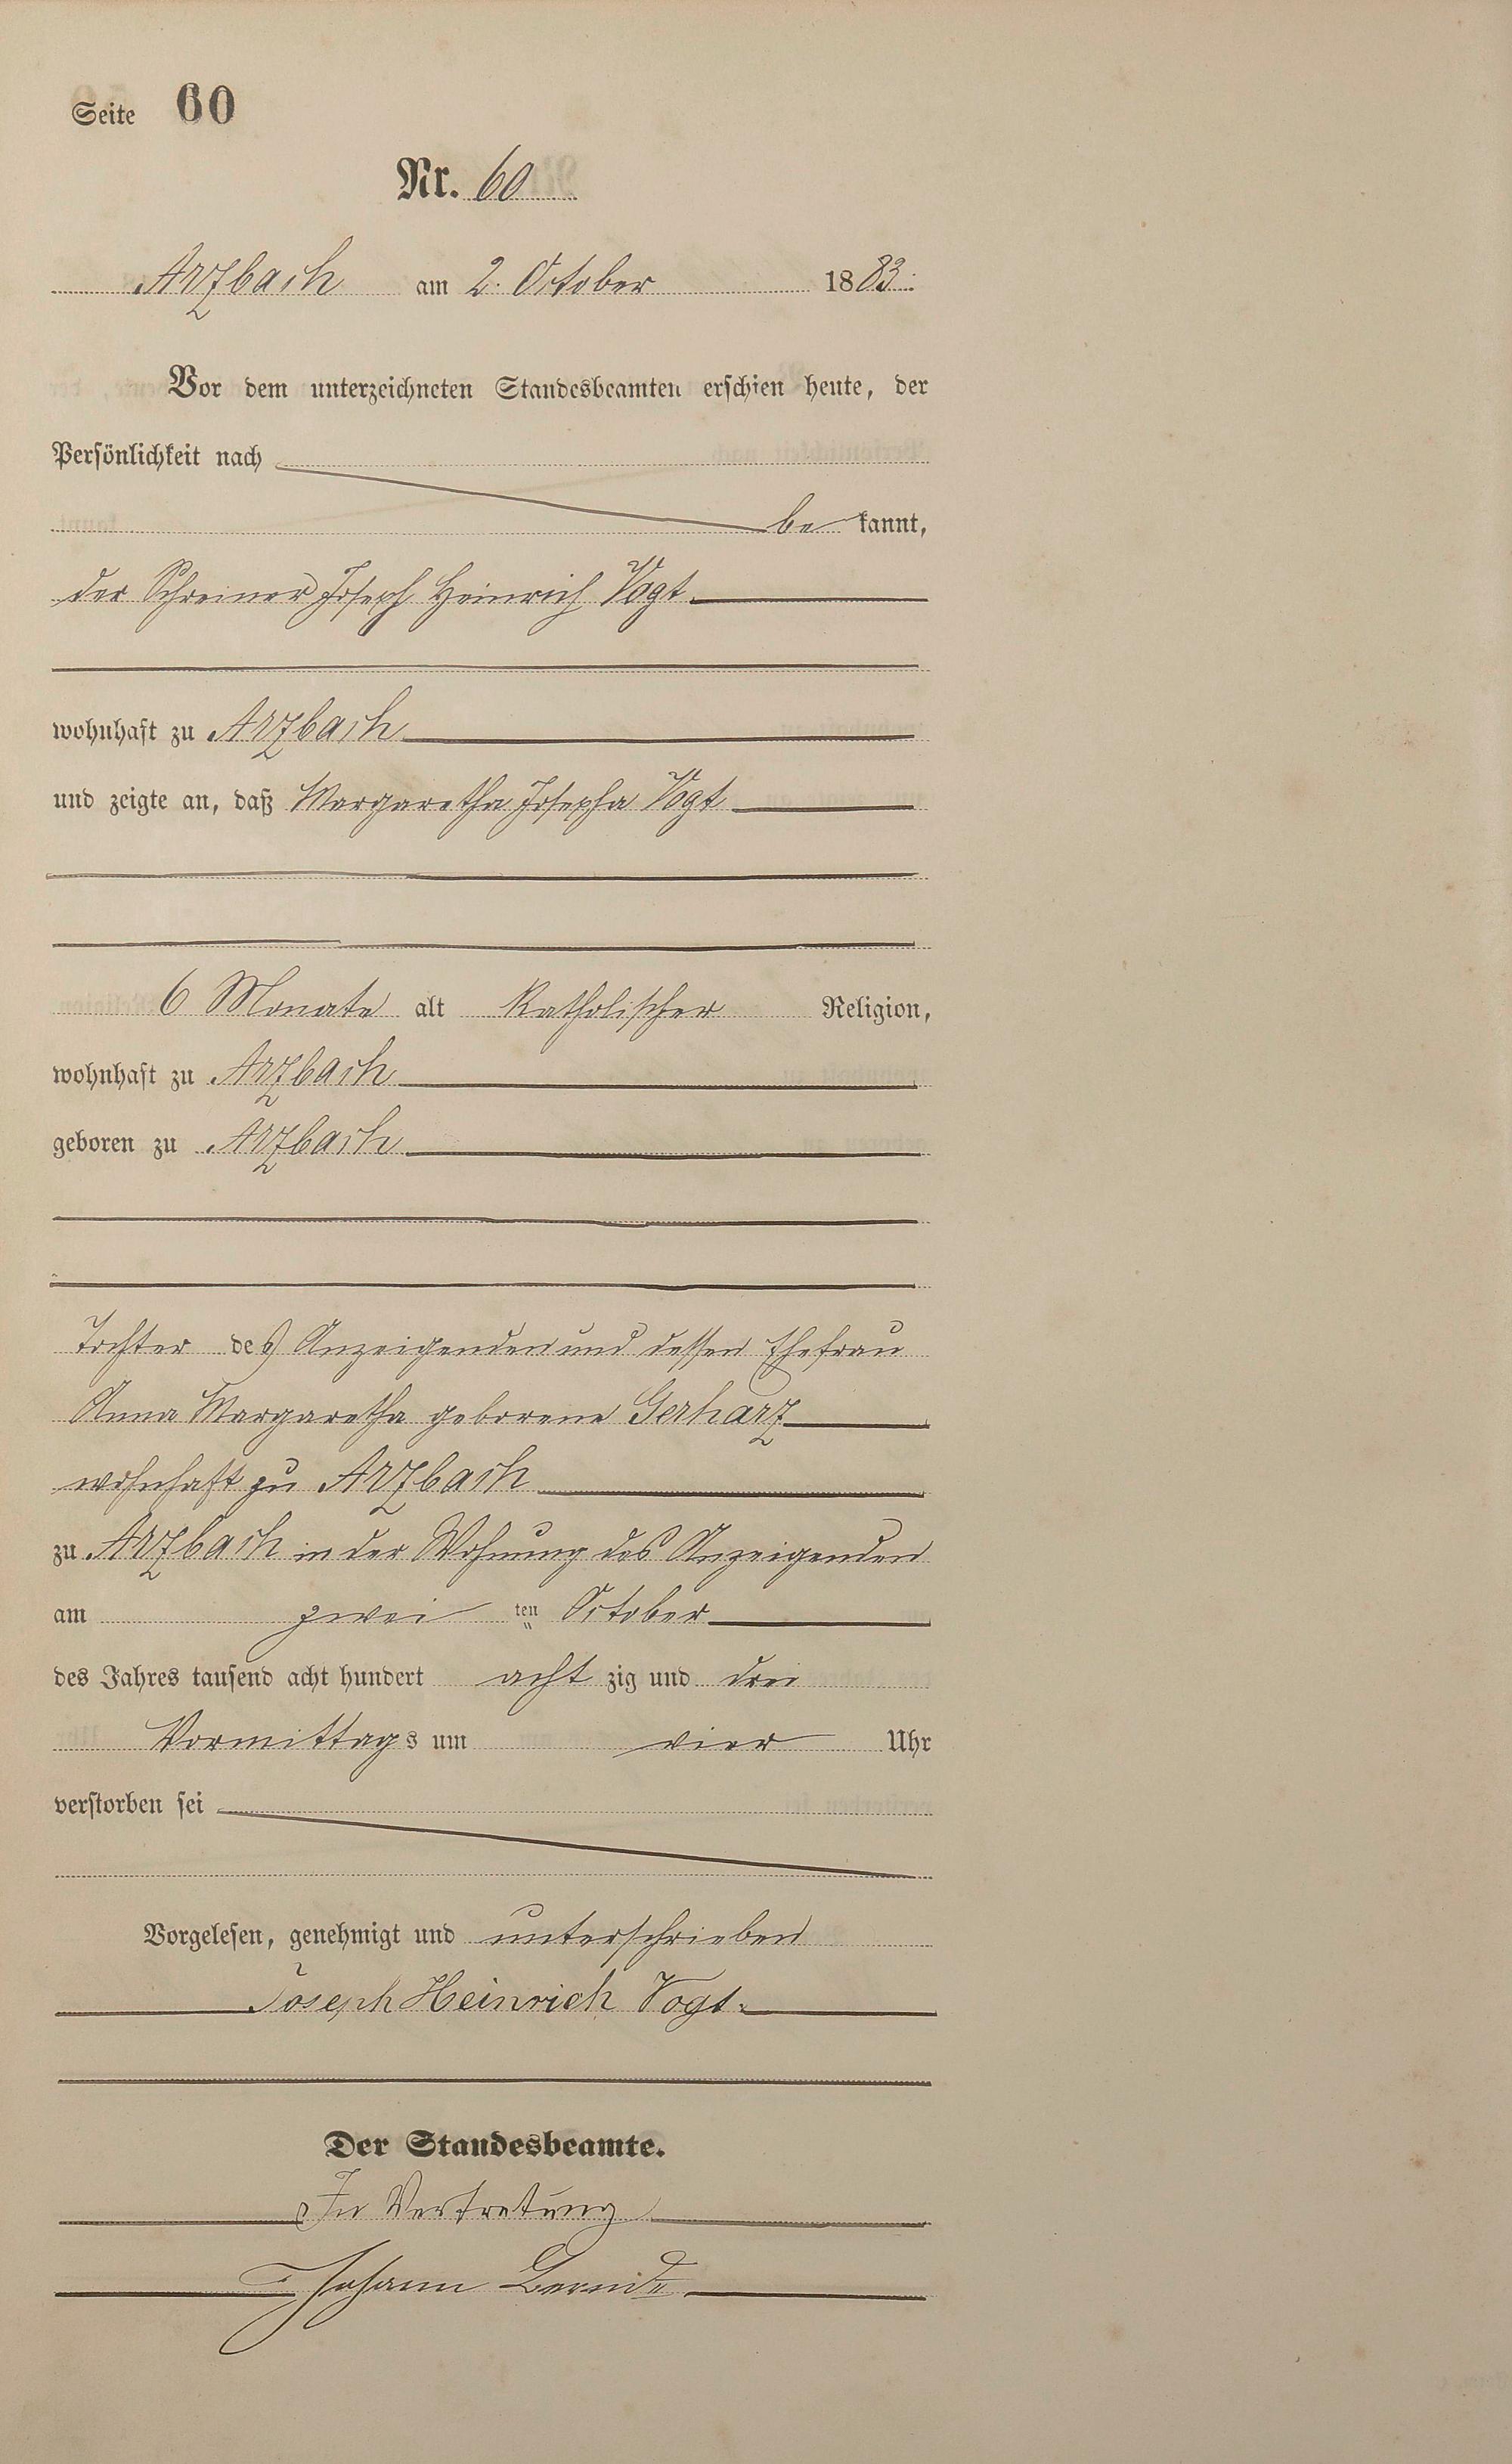 Seite 60
Nr. 60
Arzbach am 2. October 1883.
Vor dem unterzeichneten Standesbeamten erschien heute, der
Persönlichkeit nach
be kannt,
der Schreiner Joseph Heinrich Vogt
wohnhaft zu Arzbach
und zeigte an, daß Margaretha Josepha Vogt
6 Monate alt Katholischer Religion,
wohnhaft zu Arzbach
geboren zu Arzbach
Tochter des Anzeigenden und dessen Ehefrau
Anna Margaretha geborene Gerharz
wohnhaft zu Arzbach
zu Arzbach in der Wohnung des Anzeigenden
am zwei ten October
des Jahres tausend acht hundert acht zig und drei
Vormittags um vier Uhr
verstorben sei
Vorgelesen, genehmigt und unterschrieben
Joseph Heinrich Vogt.
Der Standesbeamte.
In Vertretung
Johann